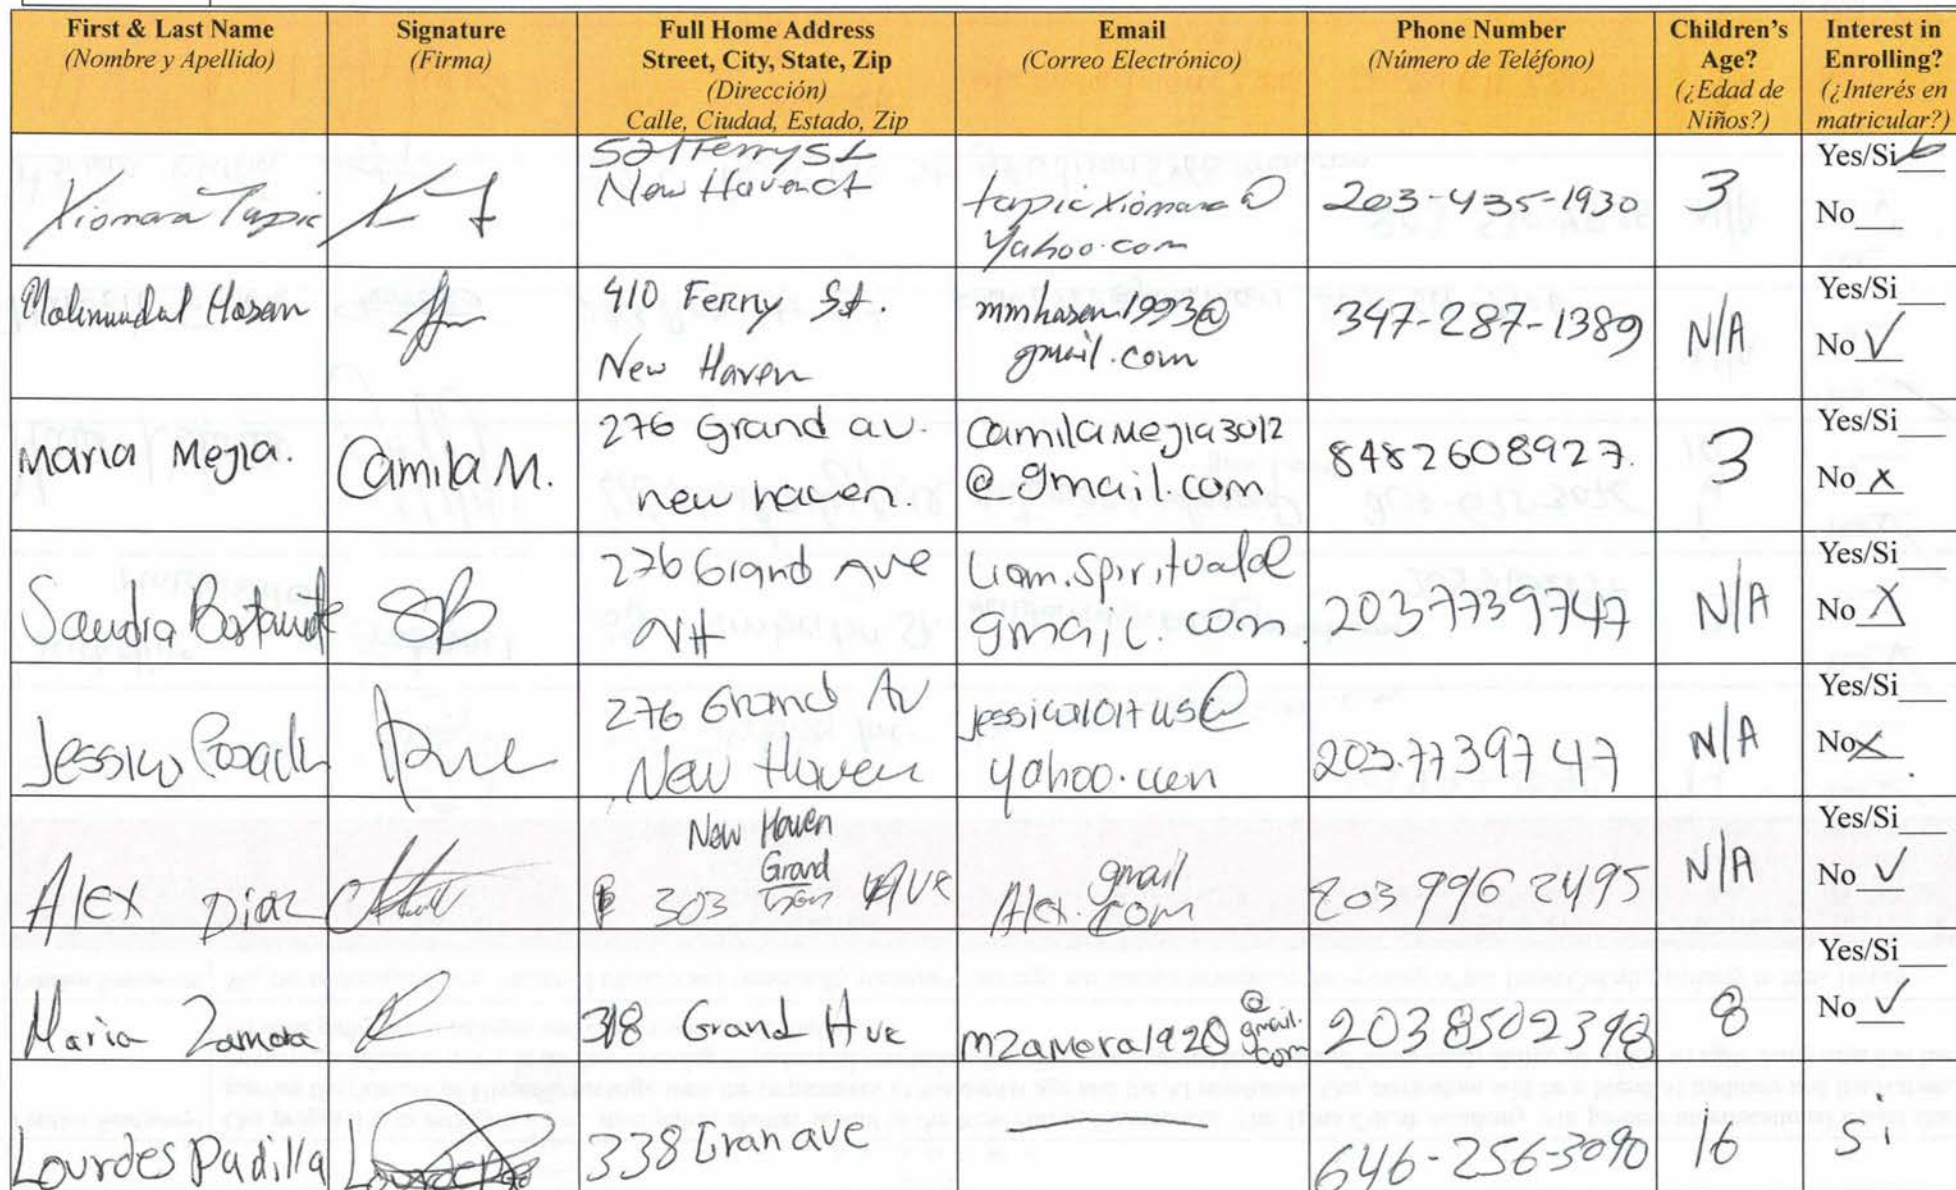 First & Last Name
(Nombre y Apellido)
Signature
(Firma)
Full Home Address
Street, City, State, Zip
(Dirección)
Calle, Ciudad, Estado, Zip
Email
(Correo Electrónico)
Phone Number
(Número de Teléfono)
Children's
Age?
(¿Edad de
Niños?)
Interest in
Enrolling?
(¿Interés en
matricular?)
Xiomara Tapic
521 Ferry St
New Haven ct
tapicxiomara@
Yahoo.com
203-435-1930
3
Yes/Si
No
Hasan
410 Ferry St.
New Haven
mmhasan1993@
gmail.com
347-287-1389
N/A
Yes/Si
No ✓
Maria Mejia.
Camila M.
276 Grand av.
new haven.
Camilamejia3012
@gmail.com
8482608927.
3
Yes/Si
No x
Sandra
SB
276 Grand Ave
NH
Liam.Spiritual@
gmail.com.
2037739747
N/A
Yes/Si
No X
Jessica
276 Grand Av
New Haven
yahoo.com
203.7739747
N/A
Yes/Si
No X
Alex Diaz
New Haven
Grand
303 AVE
gmail
Alex. com
203 996 2495
N/A
Yes/Si
No ✓
Maria Zamora
318 Grand Ave
@
mzamora1928 gmail.
com
2038502398
8
Yes/Si
No ✓
Lourdes Padilla
338 Gran ave
-
646-256-3090
16
Si